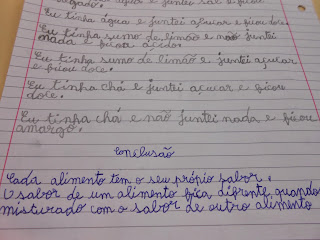 água e juntei sal e ficou
salgado.
Eu tinha água e juntei açucar e ficou doce.
Eu tinha sumo de limão e não juntei
nada e ficou ácido.
Eu tinha sumo de limão e juntei açucar
e ficou doce.
Eu tinha chá e juntei açucar e ficou
doce.
Eu tinha chá e não juntei nada e ficou
amargo.
Conclusão
Cada alimento tem o seu próprio sabor.
O sabor de um alimento fica difrente quando
misturado com o sabor de outro alimento